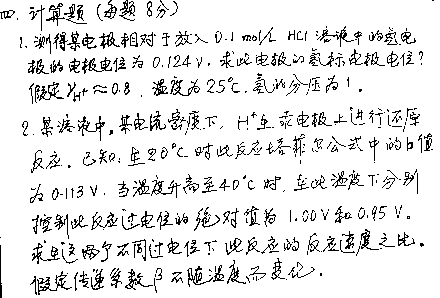 四. 计算题 (每题8分)
1. 测得某电极相对于放入 0.1 mol/L HCl 溶液中的氢电
极的电极电位为 0.124V. 求此电极的氢标电极电位?
假定 γH⁺≈0.8, 温度为25℃, 氢的分压为1.
2. 某溶液中,某电流密度下, H⁺在汞电极上进行还原
反应. 已知:在20℃时此反应塔菲尔公式中的b值
为 0.113 V. 当温度升高至40℃时, 在此温度下分别
控制此反应过电位的绝对值为 1.00V和0.95V.
求在这两个不同过电位下此反应的反应速度之比.
假定传递系数β不随温度而变化.